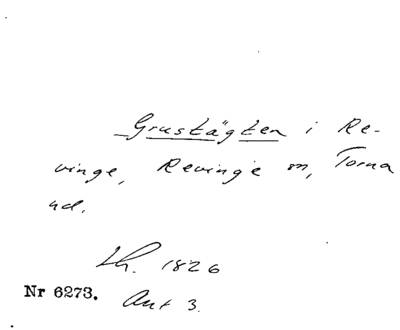 Grustägten i Re-
vinge, Revinge sn, Torna
hd.
Lh. 1826
Nr 6273. Ant 3.